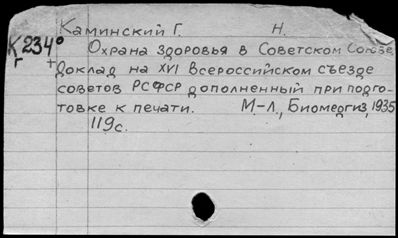 Каминский Г. Н.
К 234° Охрана здоровья в Советском Союзе
г + Доклад на XVI Всероссийском съезде
советов РСФСР дополненный при подго-
товке к печати. М-Л., Биомедгиз, 1935
119с.